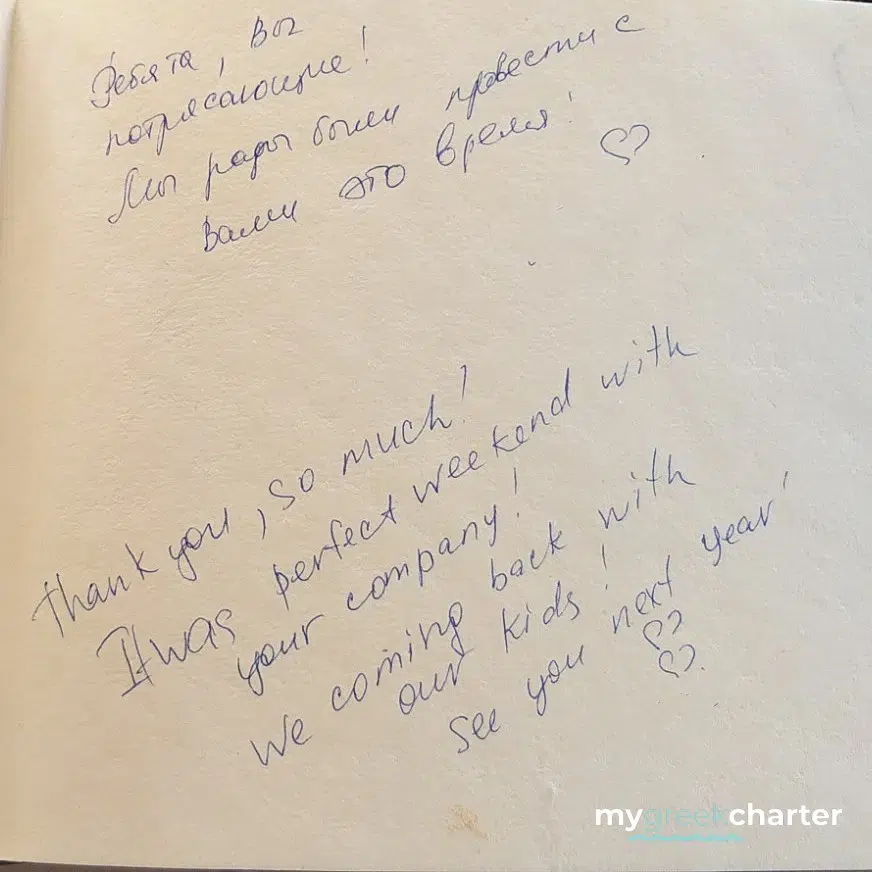 Ребята, Вы
потрясающие!
Мы рады были провести с
Вами это время!
Thank you, so much!
It was perfect weekend with
your company!
We coming back with
our kids!
See you next year!
mygreekcharter